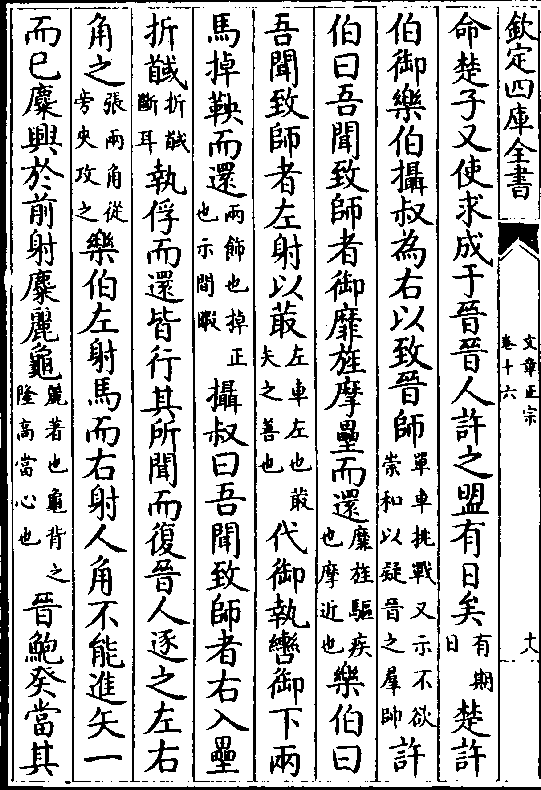 欽定四庫全書
文章正宗
卷十六
十八
命楚子又使求成于晉晉人許之盟有日矣有期日楚許
伯御樂伯攝叔為右以致晉師單車挑戰又示不欲崇和以疑晉之羣帥許
伯曰吾聞致師者御靡旌摩壘而還靡旌驅疾也摩近也樂伯曰
吾聞致師者左射以菆左車左也菆矢之善也代御執轡御下兩
馬掉鞅而還兩飾也掉正也示閒暇攝叔曰吾聞致師者右入壘
折馘折馘斷耳執俘而還皆行其所聞而復晉人逐之左右
角之張兩角從旁夾攻之樂伯左射馬而右射人角不能進矢一
而已麋興於前射麋麗龜麗著也龜背之隆高當心也晉鮑癸當其